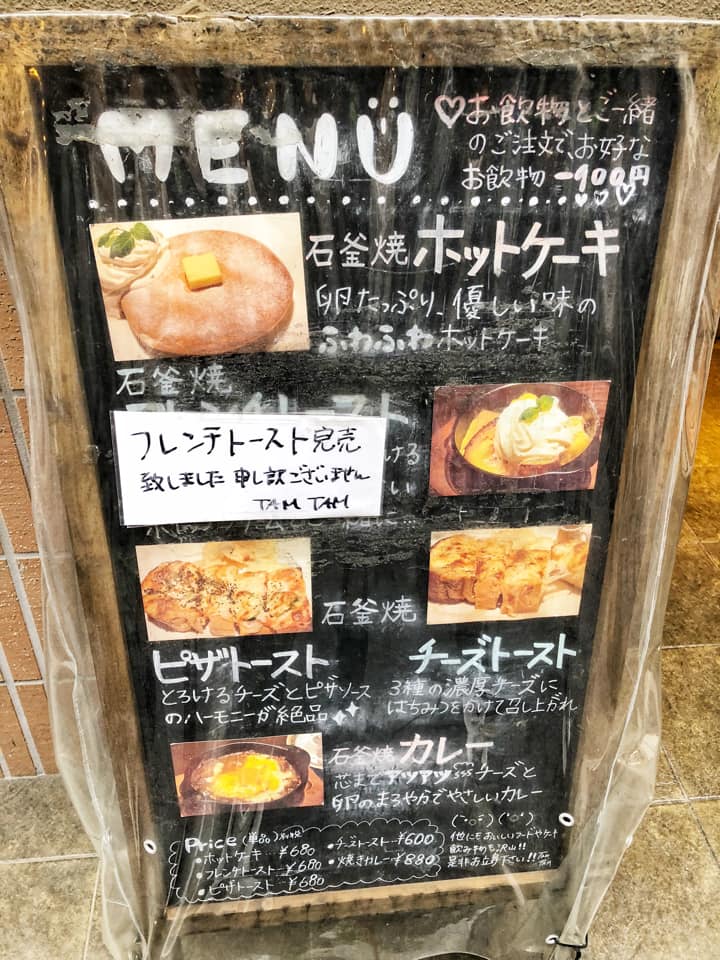 MENU
♡お飲物とご一緒
のご注文で、お好な
お飲物 -100円
石釜焼ホットケーキ
卵たっぷり、優しい味の
ふわふわホットケーキ
石釜焼
フレンチトースト完売
致しました 申し訳ございません
TAM TAM
石釜焼
ピザトースト
とろけるチーズとピザソース
のハーモニーが絶品
チーズトースト
3種の濃厚チーズに
はちみつをかけて召し上がれ
石釜焼 カレー
芯までアツアツ チーズと
卵のまろやかでやさしいカレー
Price (単品)別税
・ホットケーキ ¥680
・フレンチトースト ¥680
・ピザトースト ¥680
・チーズトースト ¥600
・焼きカレー ¥880
他にもおいしいフードやケーキ
飲み物も沢山!!
是非お立寄下さい!!